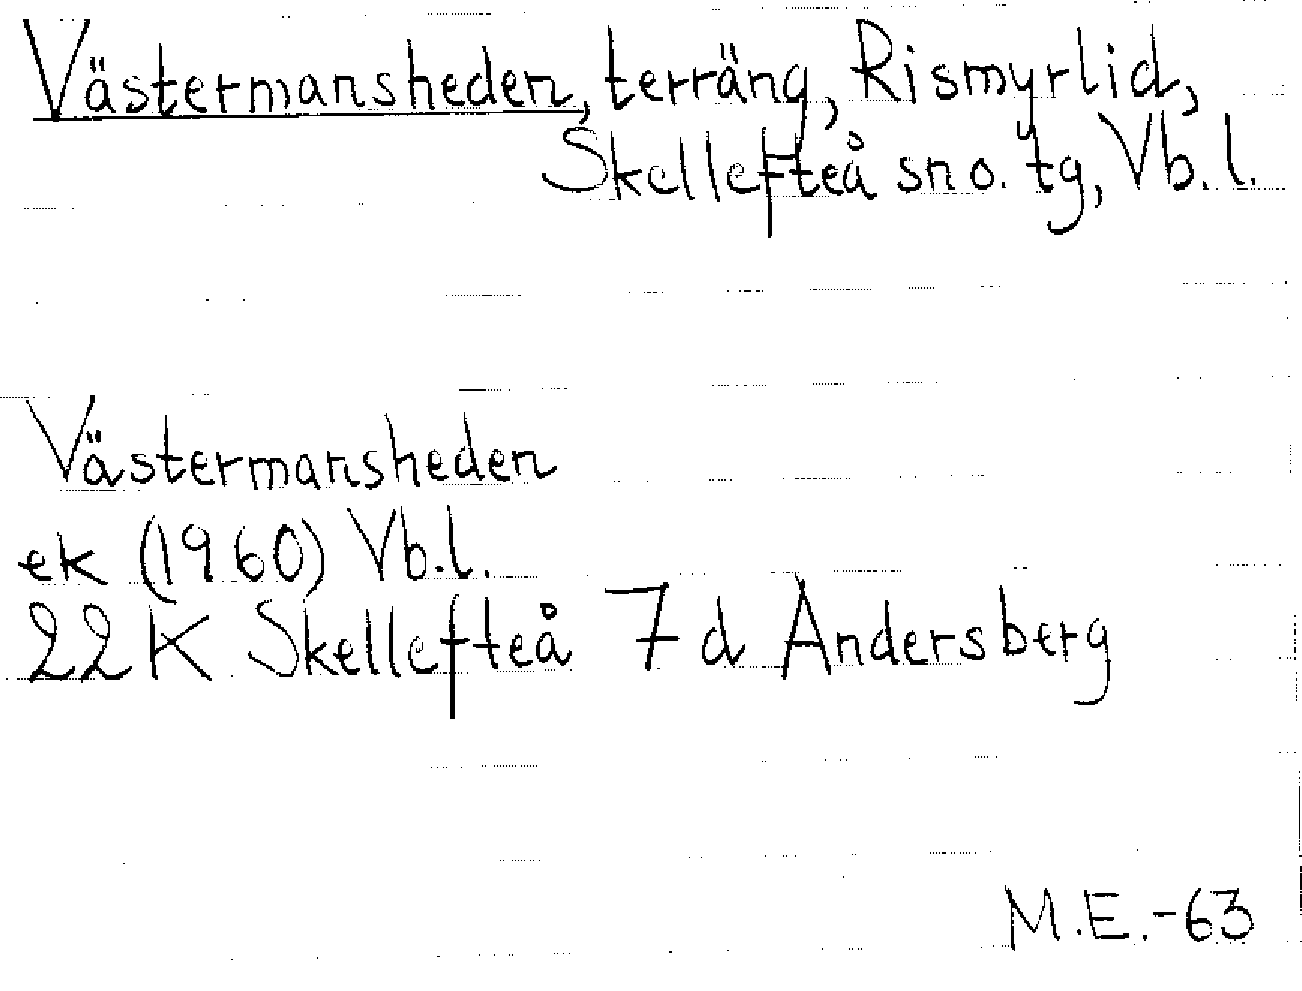 Västermansheden, terräng, Rismyrlid,
Skellefteå sn o. tg, Vb. l.
Västermansheden
ek (1960) Vb.l.
22 K Skellefteå 7 d Andersberg
M.E.-63